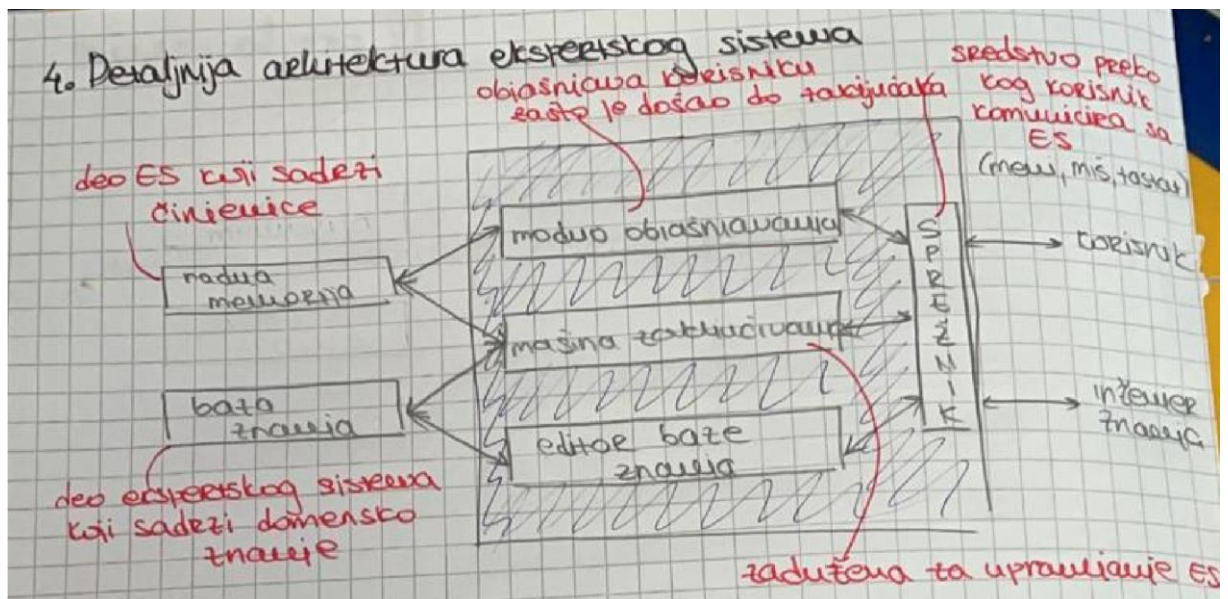 4. Detaljnija arhitektura ekspertskog sistema
objašnjava korisniku
zašto je došao do zaključaka
sredstvo preko
kog korisnik
komunicira sa
ES
(meni, miš, tastat)
deo ES koji sadrži
činjenice
modul objašnjavanja
radna
memorija
mašina zaključivanja
baza
znanja
editor baze
znanja
S
P
R
E
Ž
N
I
K
korisnik
inženjer
znanja
deo ekspertskog sistema
koji sadrži domensko
znanje
zadužena za upravljanje ES